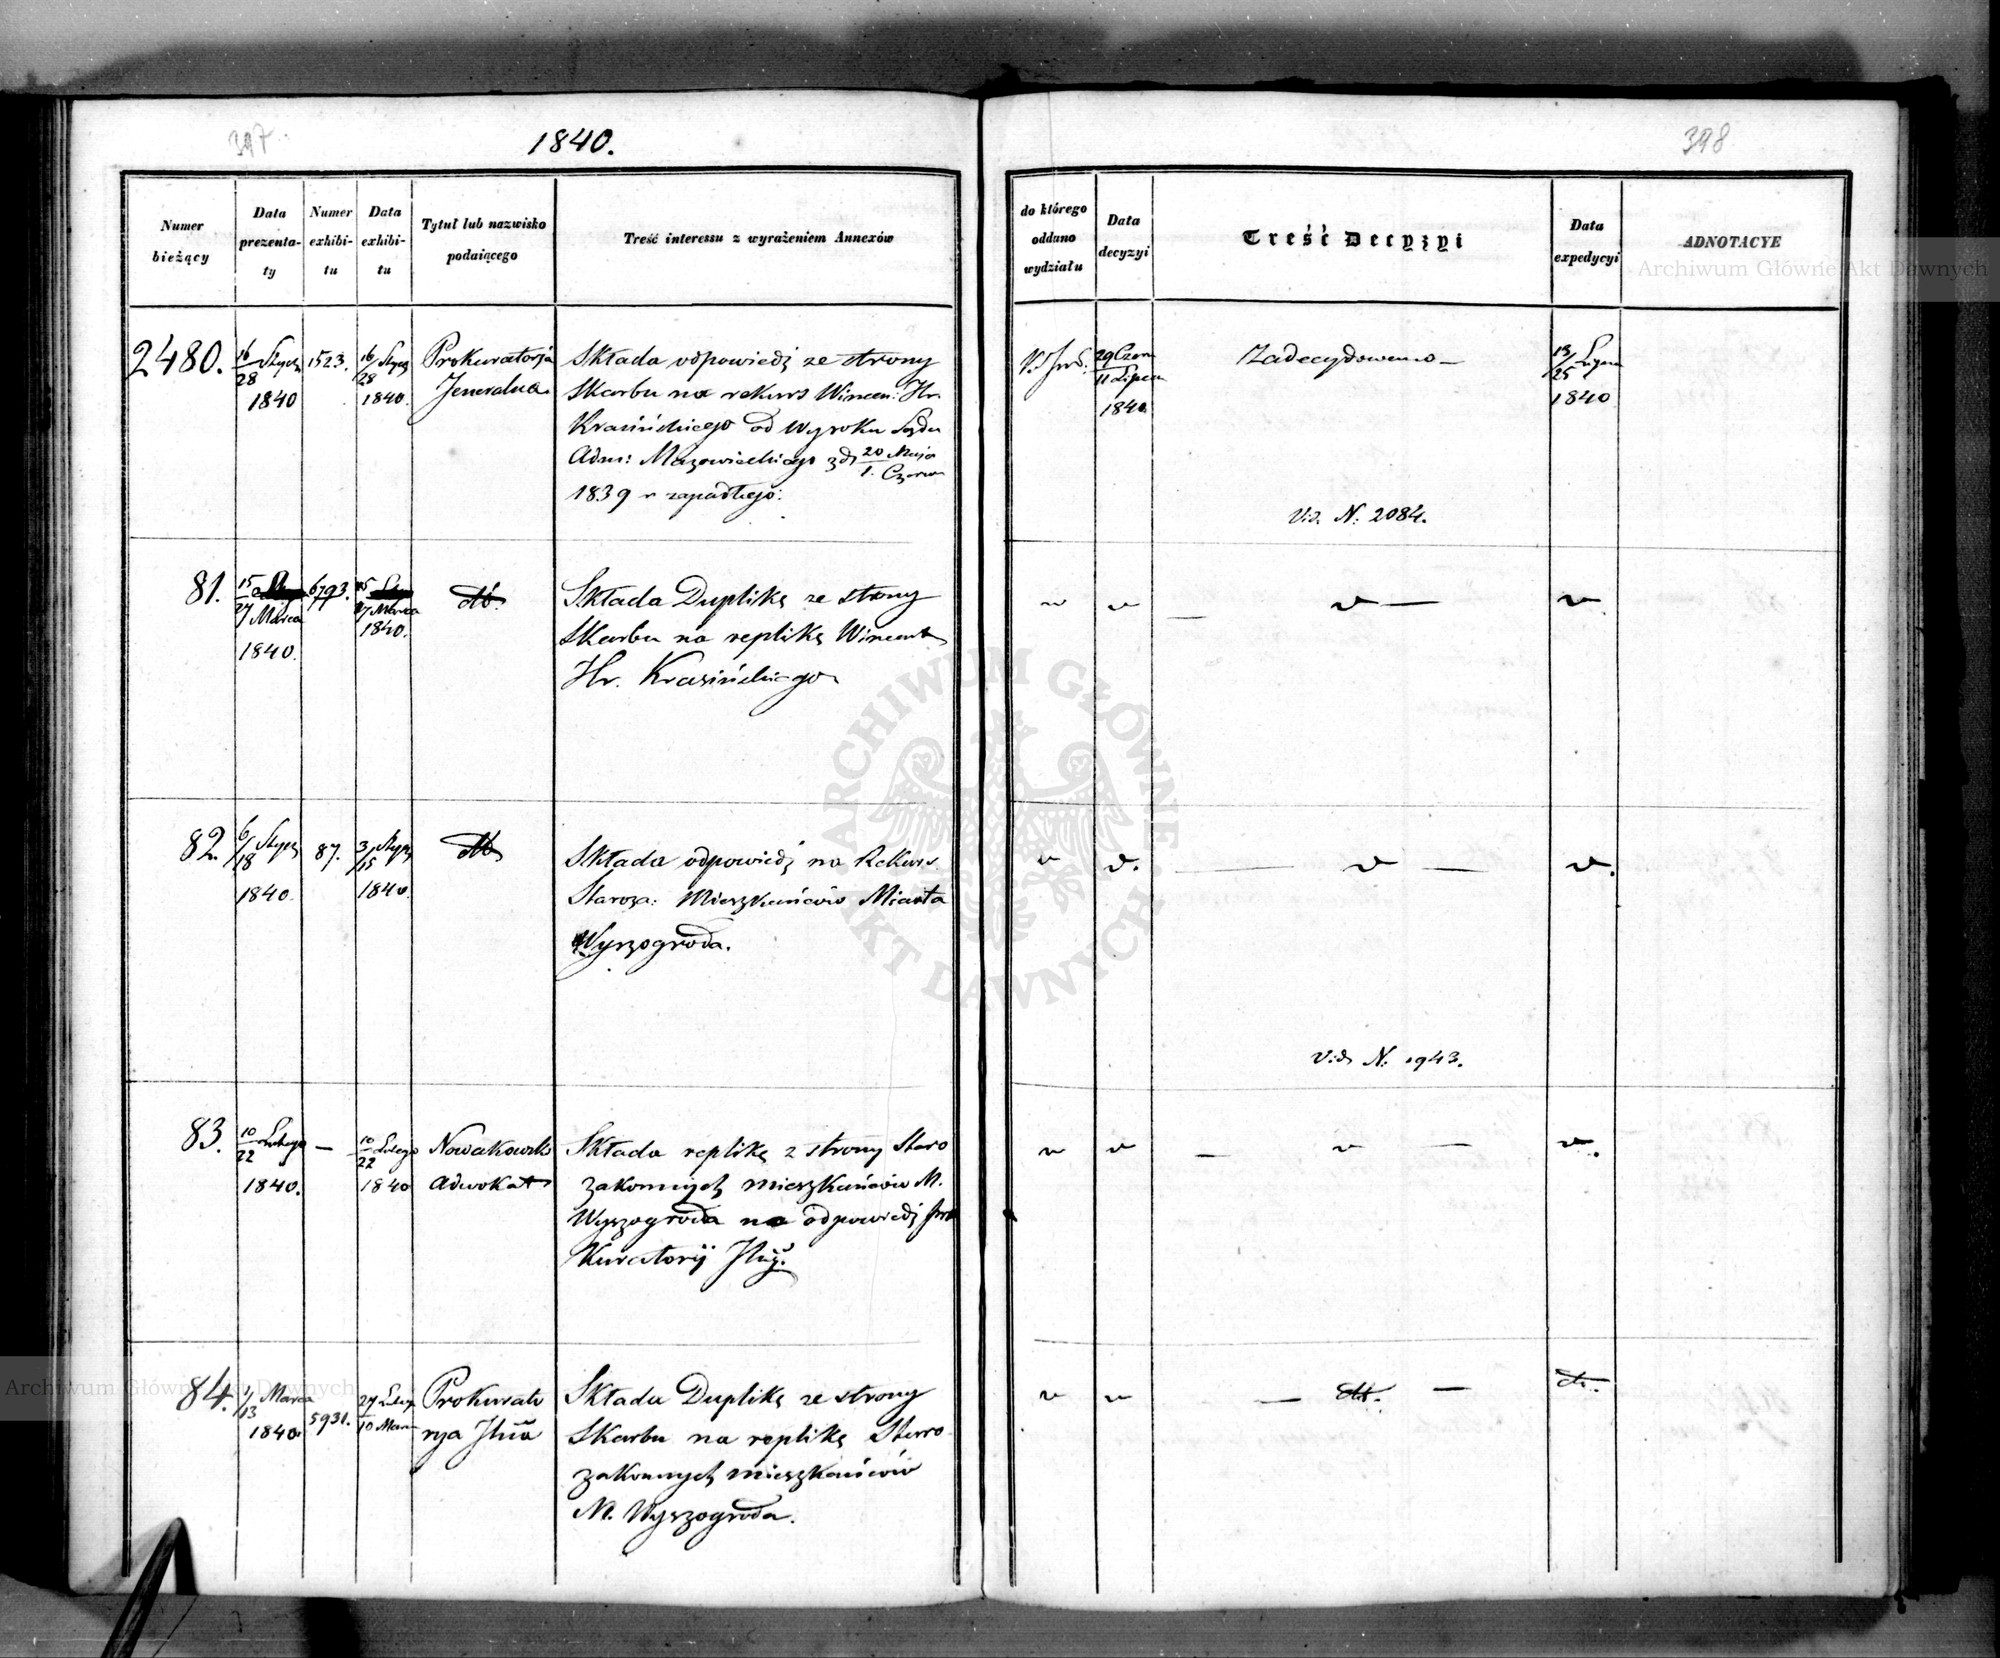 397
1840.
398
Numer bieżący
Data prezentaty
Numer exhibitu
Data exhibitu
Tytuł lub nazwisko podaiącego
Treść interessu z wyrażeniem Annexów
do którego oddano wydziału
Data decyzyi
Treść Decyzyi
Data expedycyi
ADNOTACYE
Archiwum Główne Akt Dawnych
2480.
16/28 Stycz
1840
1523.
16/28 Stycz
1840.
Prokuratorja
Jeneralna
Składa odpowiedź ze strony
Skarbu na rekurs Wincen: Hr.
Krasińskiego od Wyroku Sądu
Adm: Mazowieckiego z d. 20 Maja / 1. Czerwca
1839 r zapadłego.
29 Czer / 11 Lipca
1840
Zadecydowano —
13/25 Lipca
1840
Vid. N: 2084.
81.
15
27 Marca
1840.
6793.
15
27 Marca
1840.
dto
Składa Duplikę ze strony
Skarbu na replikę Wincent
Hr. Krasińskiego
82.
6/18 Stycz
1840.
87.
3/15 Stycz
1840.
dto
Składa odpowiedź na Rekurs
Staroza: Mieszkańców Miasta
Wyszogroda.
Vid. N: 1943.
83.
10/22 Lutego
1840.
—
10/22 Lutego
1840
Nowakowski
Adwokat
Składa replikę z strony Staro
zakonnych mieszkańców M.
Wyszogroda na odpowiedź Pro
kuratorij
84.
1/13 Marca
1840.
5931.
27 Luteg
10 Mar
Prokurato
rya
Składa Duplikę ze strony
Skarbu na replikę Staro
zakonnych mieszkańców
M. Wyszogroda.
dto.
dto.
Archiwum Główne Akt Dawnych
ARCHIWUM GŁÓWNE AKT DAWNYCH